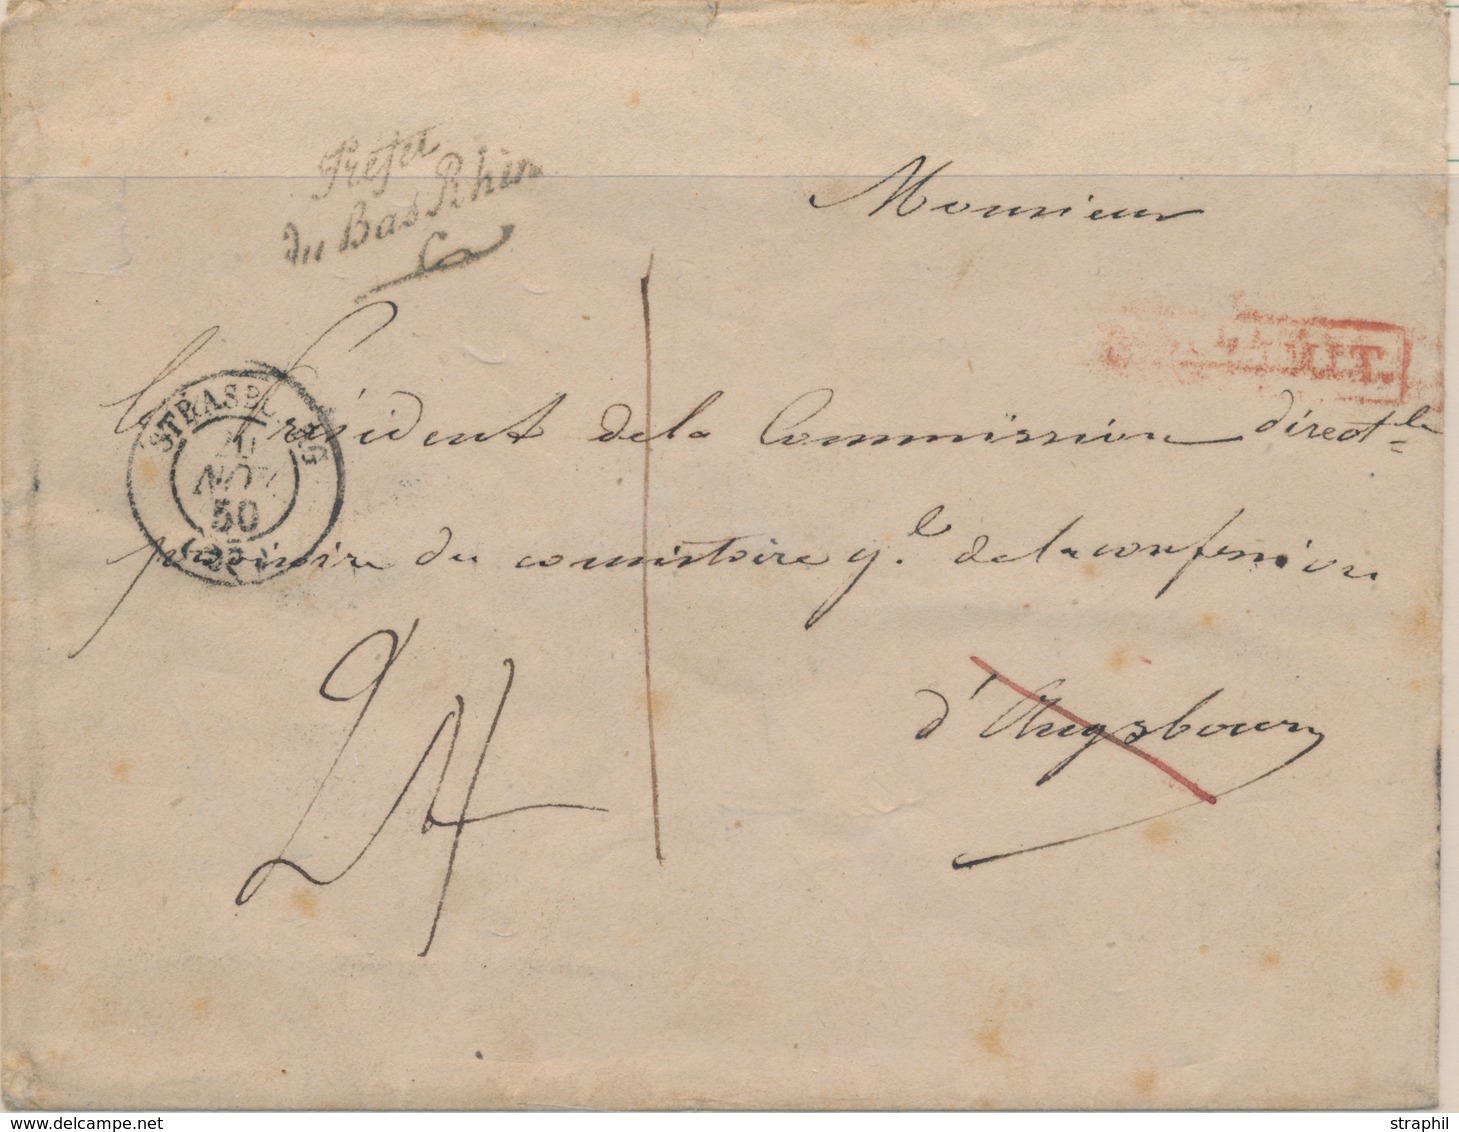 Préfet
du Bas Rhin
Monsieur
le Président de la Commission direct.le
provisoire du consistoire g.l de la confession
d'Augsbourg
STRASBOURG
NOV.
50
24
delcampe.net
straphil